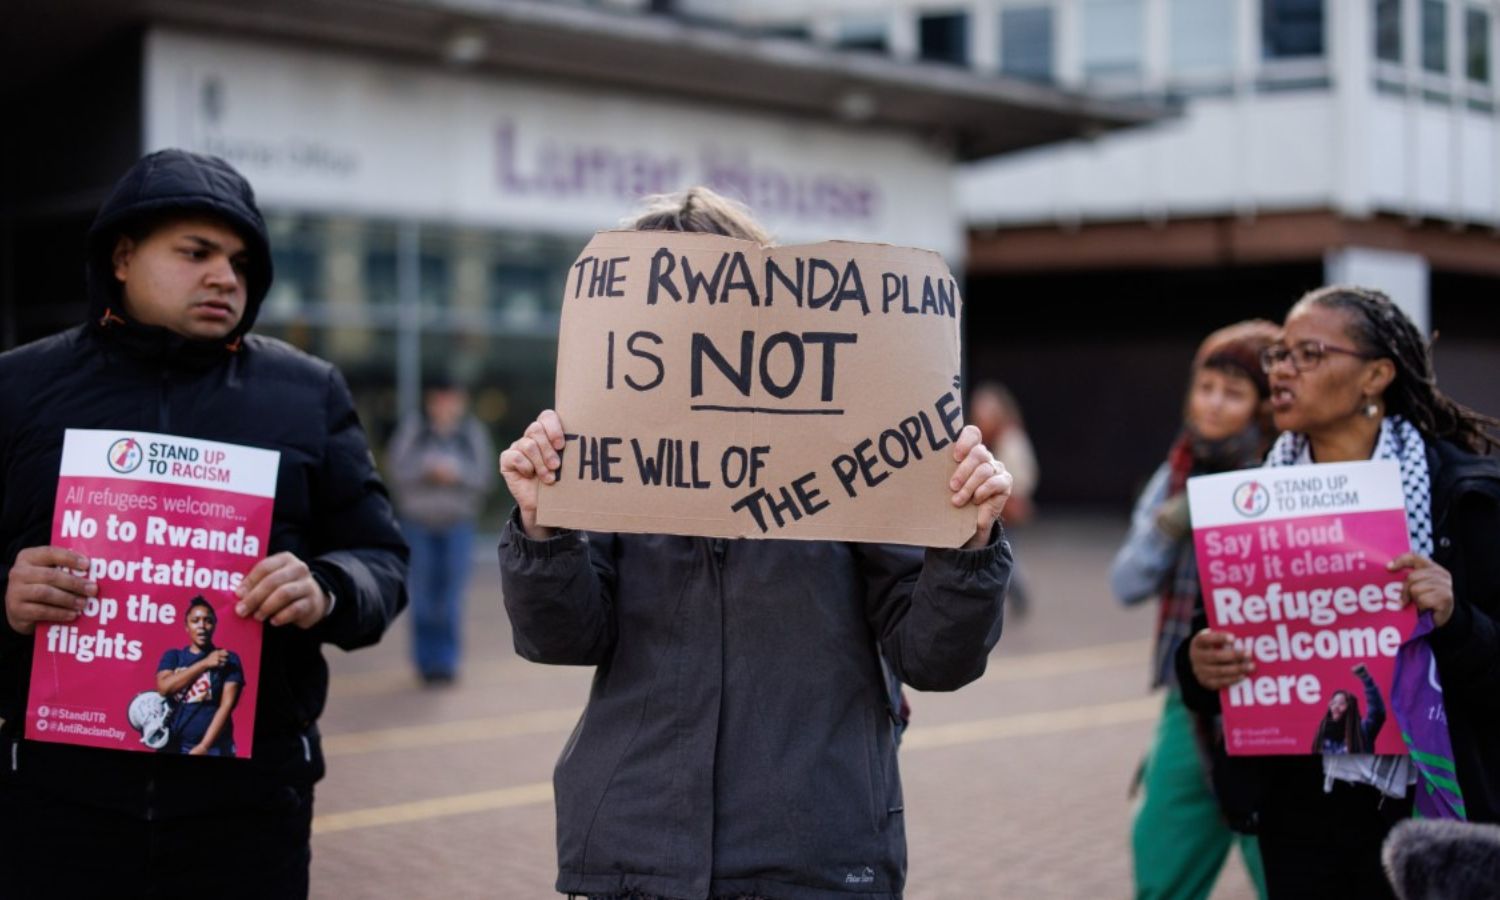 Home Office
Lunar House
THE RWANDA PLAN
IS NOT
THE WILL OF
THE PEOPLE"
STAND UP
TO RACISM
All refugees welcome...
No to Rwanda
portations
op the
flights
@StandUTR
@AntiRacismDay
STAND UP
TO RACISM
Say it loud
Say it clear:
Refugees
welcome
here
Peter Storm